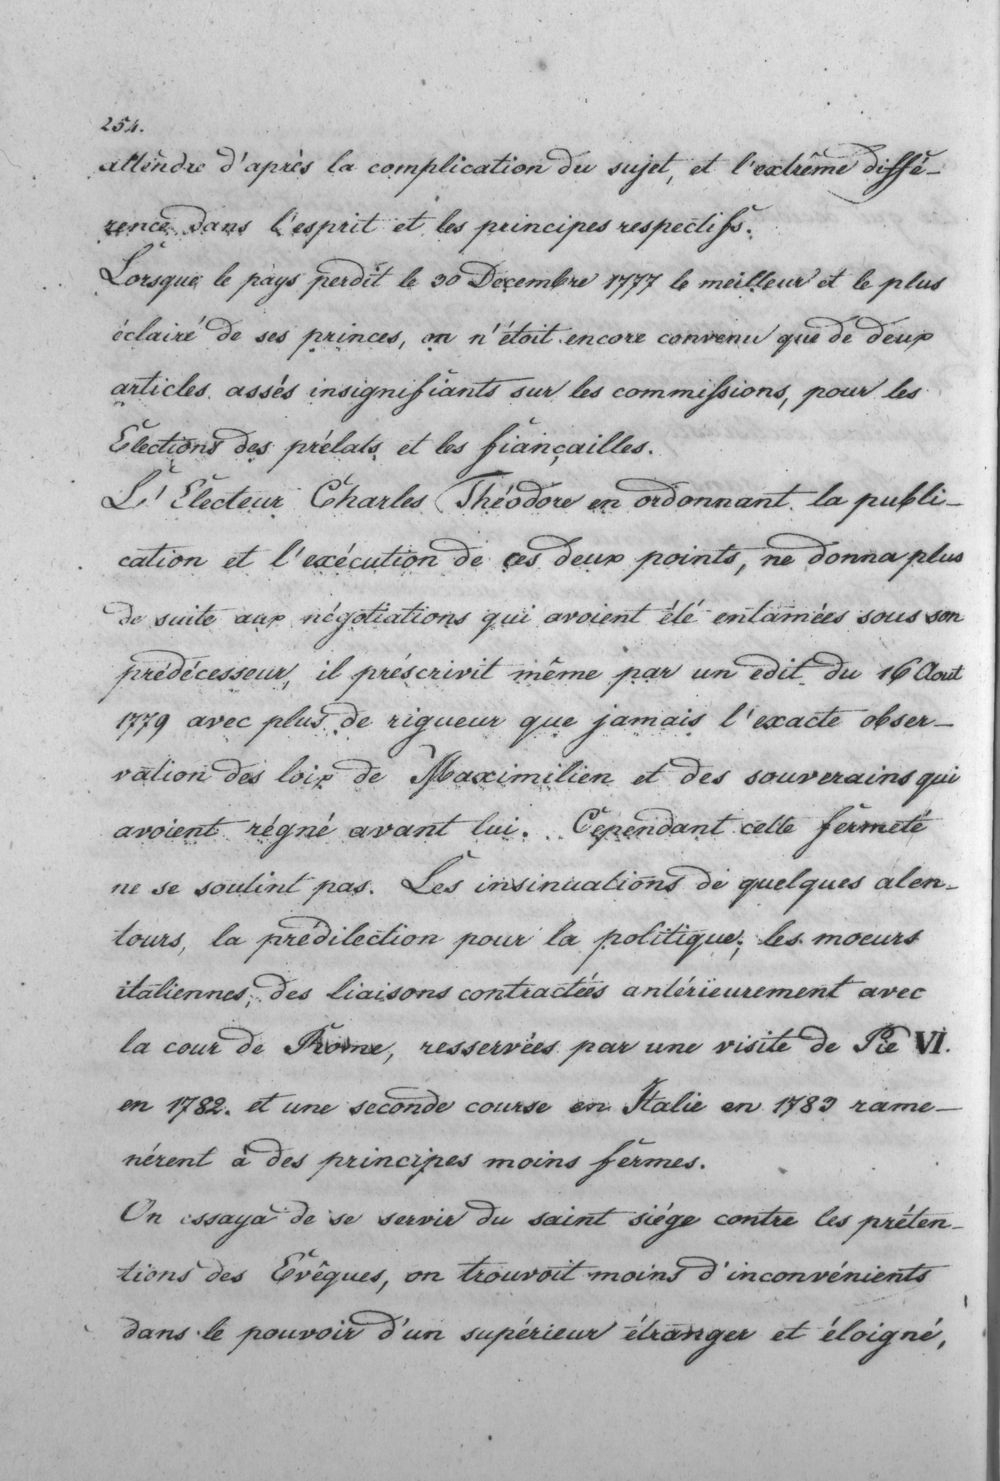 254.
attendre d'après la complication du sujet, et l'extrême diffé-
rence dans l'esprit et les principes respectifs.
Lorsque le pays perdit le 30 Decembre 1777 le meilleur et le plus
éclairé de ses princes, on n'étoit encore convenu que de deux
articles assés insignifiants sur les commissions, pour les
Elections des prélats et les fiançailles.
L'Electeur Charles Théodore en ordonnant la publi-
cation et l'exécution de ces deux points, ne donna plus
de suite aux négotiations qui avoient été entamées sous son
prédécesseur, il préscrivit même par un edit du 16 Aout
1779 avec plus de rigueur que jamais l'exacte obser-
vation des loix de Maximilien et des souverains qui
avoient régné avant lui. Cependant cette fermeté
ne se soutint pas. Les insinuations de quelques alen-
tours, la prédilection pour la politique, les moeurs
italiennes, des liaisons contractées antérieurement avec
la cour de Rome, resservées par une visite de Pie VI.
en 1782. et une seconde course en Italie en 1783 rame-
nérent à des principes moins fermes.
On essaya de se servir du saint siége contre les préten-
tions des Evêques, on trouvoit moins d'inconvénients
dans le pouvoir d'un supérieur étranger et éloigné,